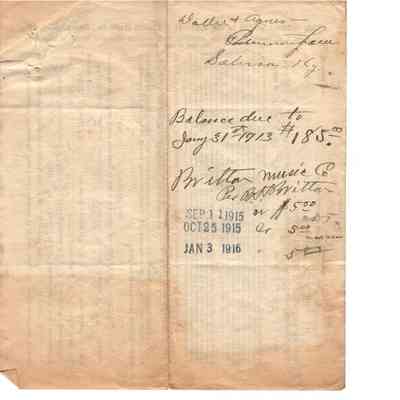 Dollie & Agnes
Salem Ky.
Balance due to
Jany 31st 1913 $185.
Britton Music Co
Per Britton
SEP 11 1915 or $5 00
OCT 25 1915 Cr 5 00
JAN 3 1916 5 00